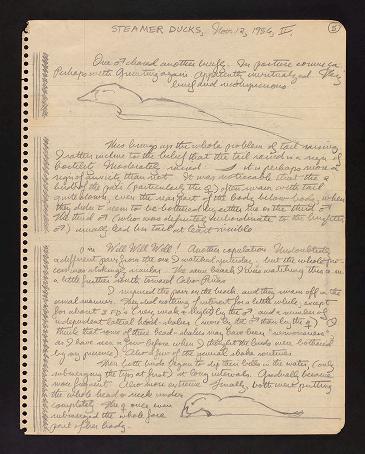 STEAMER DUCKS, Nov. 12, 1956, IV.
5
One ♂ chased another briefly. In posture somewhat
Perhaps with Greeting again apparently unritualized. Very
brief and inconspicuous
This brings up the whole problem of tail raising
I rather incline to the belief that the tail raised is a sign of
hostility. Moderately raised it is perhaps more a
sign of anxiety than not. It was noticeable that the
birds of the pair (particularly the ♂) often swam with tail
quite down, even the rear part of the body below
they didn't seem to be bothered by either the
The third ♂ who was definitely subordinate to the
♂) usually had his tail at least visible
Well Well Well! Another copulation. Undoubtedly
a different pair from the one I watched yesterday, but the whole
was strikingly similar. The same beach I was watching
a little further south toward Cabo
I surprised the pair on the beach, and they swam off in the
usual manner. They did nothing of interest for a little while, except
for about 3 very weak slightly by the ♂, and a number of
independent lateral head-shakes (more by the ♂ than by the ♀) (I
think that some of these head-shakes may have been "nervousness"
as I have seen a few before when I thought the birds were bothered
by my presence) Also a few of the usual shake routines
Then both birds began to dip their bills in the water, (only
submerging the tips at first) at long intervals. Gradually became
more frequent. Also more extreme. Finally, both were putting
the whole head & neck under
completely. The ♀ once even
submerged the whole fore
part of her body.